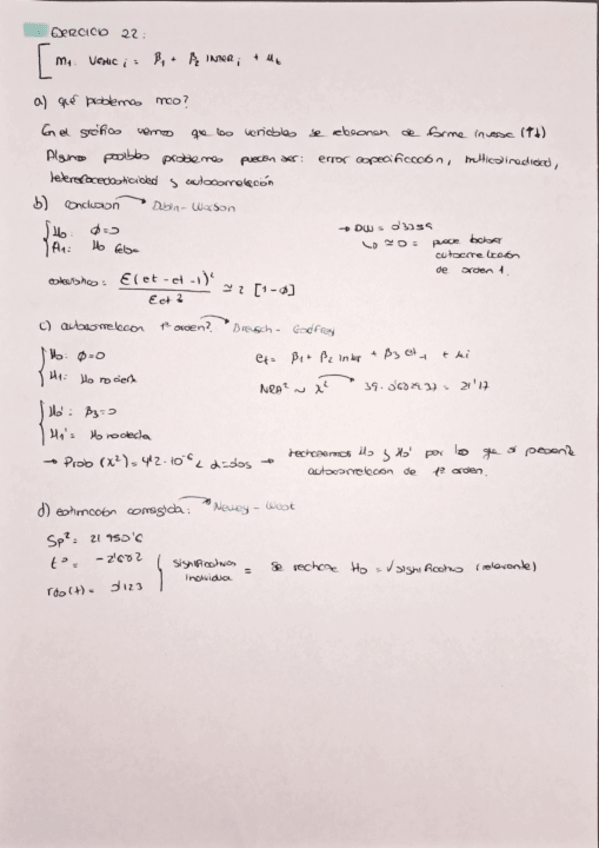 EJERCICIO 22:
M1. VEHIC i = β1 + β2 INTER i + ut
a) qué problemas mco?
En el gráfico vemos que las variables se relacionan de forma inversa (↑↓)
Algunos posibles problemas pueden ser: error especificación, multicolinealidad,
heterocedasticidad y autocorrelación
b) conclusion → Durbin-Watson
H0: Ø=0
A1: H0 falsa
→ DW = 0'3259
↳ ≃ 0 = puede haber
autocorrelación
de orden 1.
estadístico = Σ(et - et-1)² / Σet² ≃ 2 [1-Ø]
c) autocorrelacion 1º orden? → Breusch-Godfrey
H0: Ø=0
H1: H0 no cierta
et = β1 + β2 inter + β3 et-1 + ui
NRA² ~ χ² → 39. = 21'17
H0': β3=0
H1' = H0 no cierta
→ Prob (χ²) = 4'2·10⁻⁶ < α=0'05 → rechazamos H0 y H0' por lo que si presenta
autocorrelación de 1º orden.
d) estimación corregida: → Newey-West
Sp² = 21 950'6
tº = -2'
rdo(t) =
significativos
individual = Se rechaza H0 = √significativo (relevante)